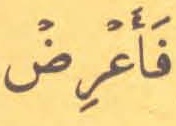 فَأَعْرِضْ